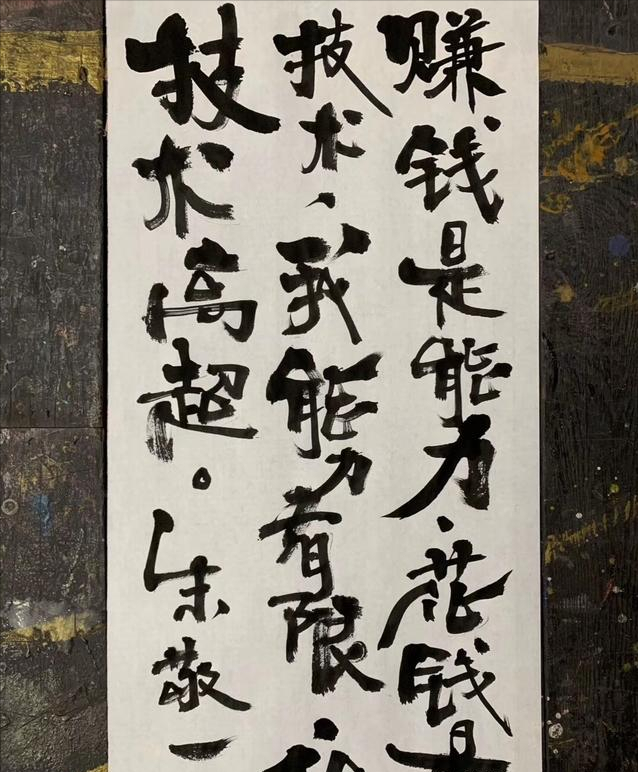 赚钱是能力,花钱是
技术,我能力有限,
技术高超。朱敬一